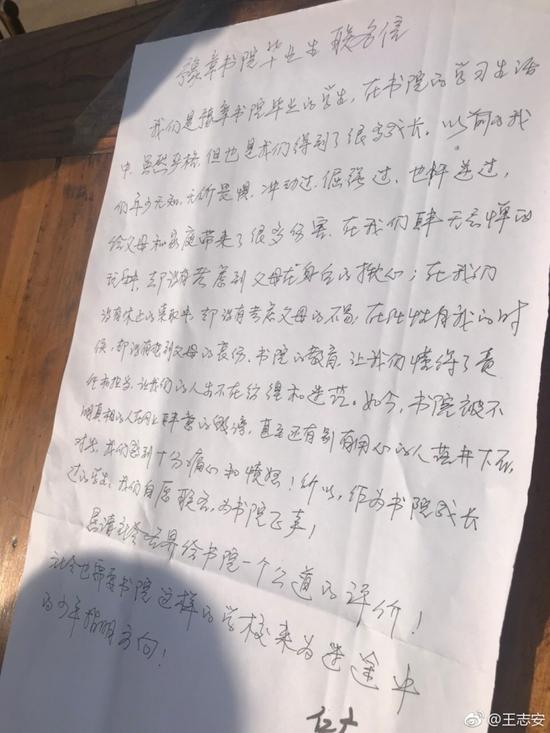 豫章书院毕业生联名信
我们是豫章书院毕业的学生，在书院的学习生活
中，虽然严格，但也是我们得到了很多成长。以前的我
们年少无知，无所畏惧，冲动过，倔强过，也叛逆过，
给父母和家庭带来了很多伤害，在我们肆无忌惮的
玩乐，却没有考虑到父母在身后的揪心；在我们
没有休止的索取时，却没有考虑父母的不易，在任性自我的时
候，却没有想到父母的哀伤，书院的教育，让我们懂得了责
任和担当，让我们的人生不在彷徨和迷茫。如今，书院被不
明真相的人在网上肆意的毁谤，直至还有别有用心的人落井下石，
对此，我们感到十分痛心和愤怒！所以，作为书院成长
过的学生，我们自愿联名，为书院正声！
恳请社会各界给书院一个公道的评价！
社会也需要书院这样的学校来为迷途中
的少年指明方向！
@王志安